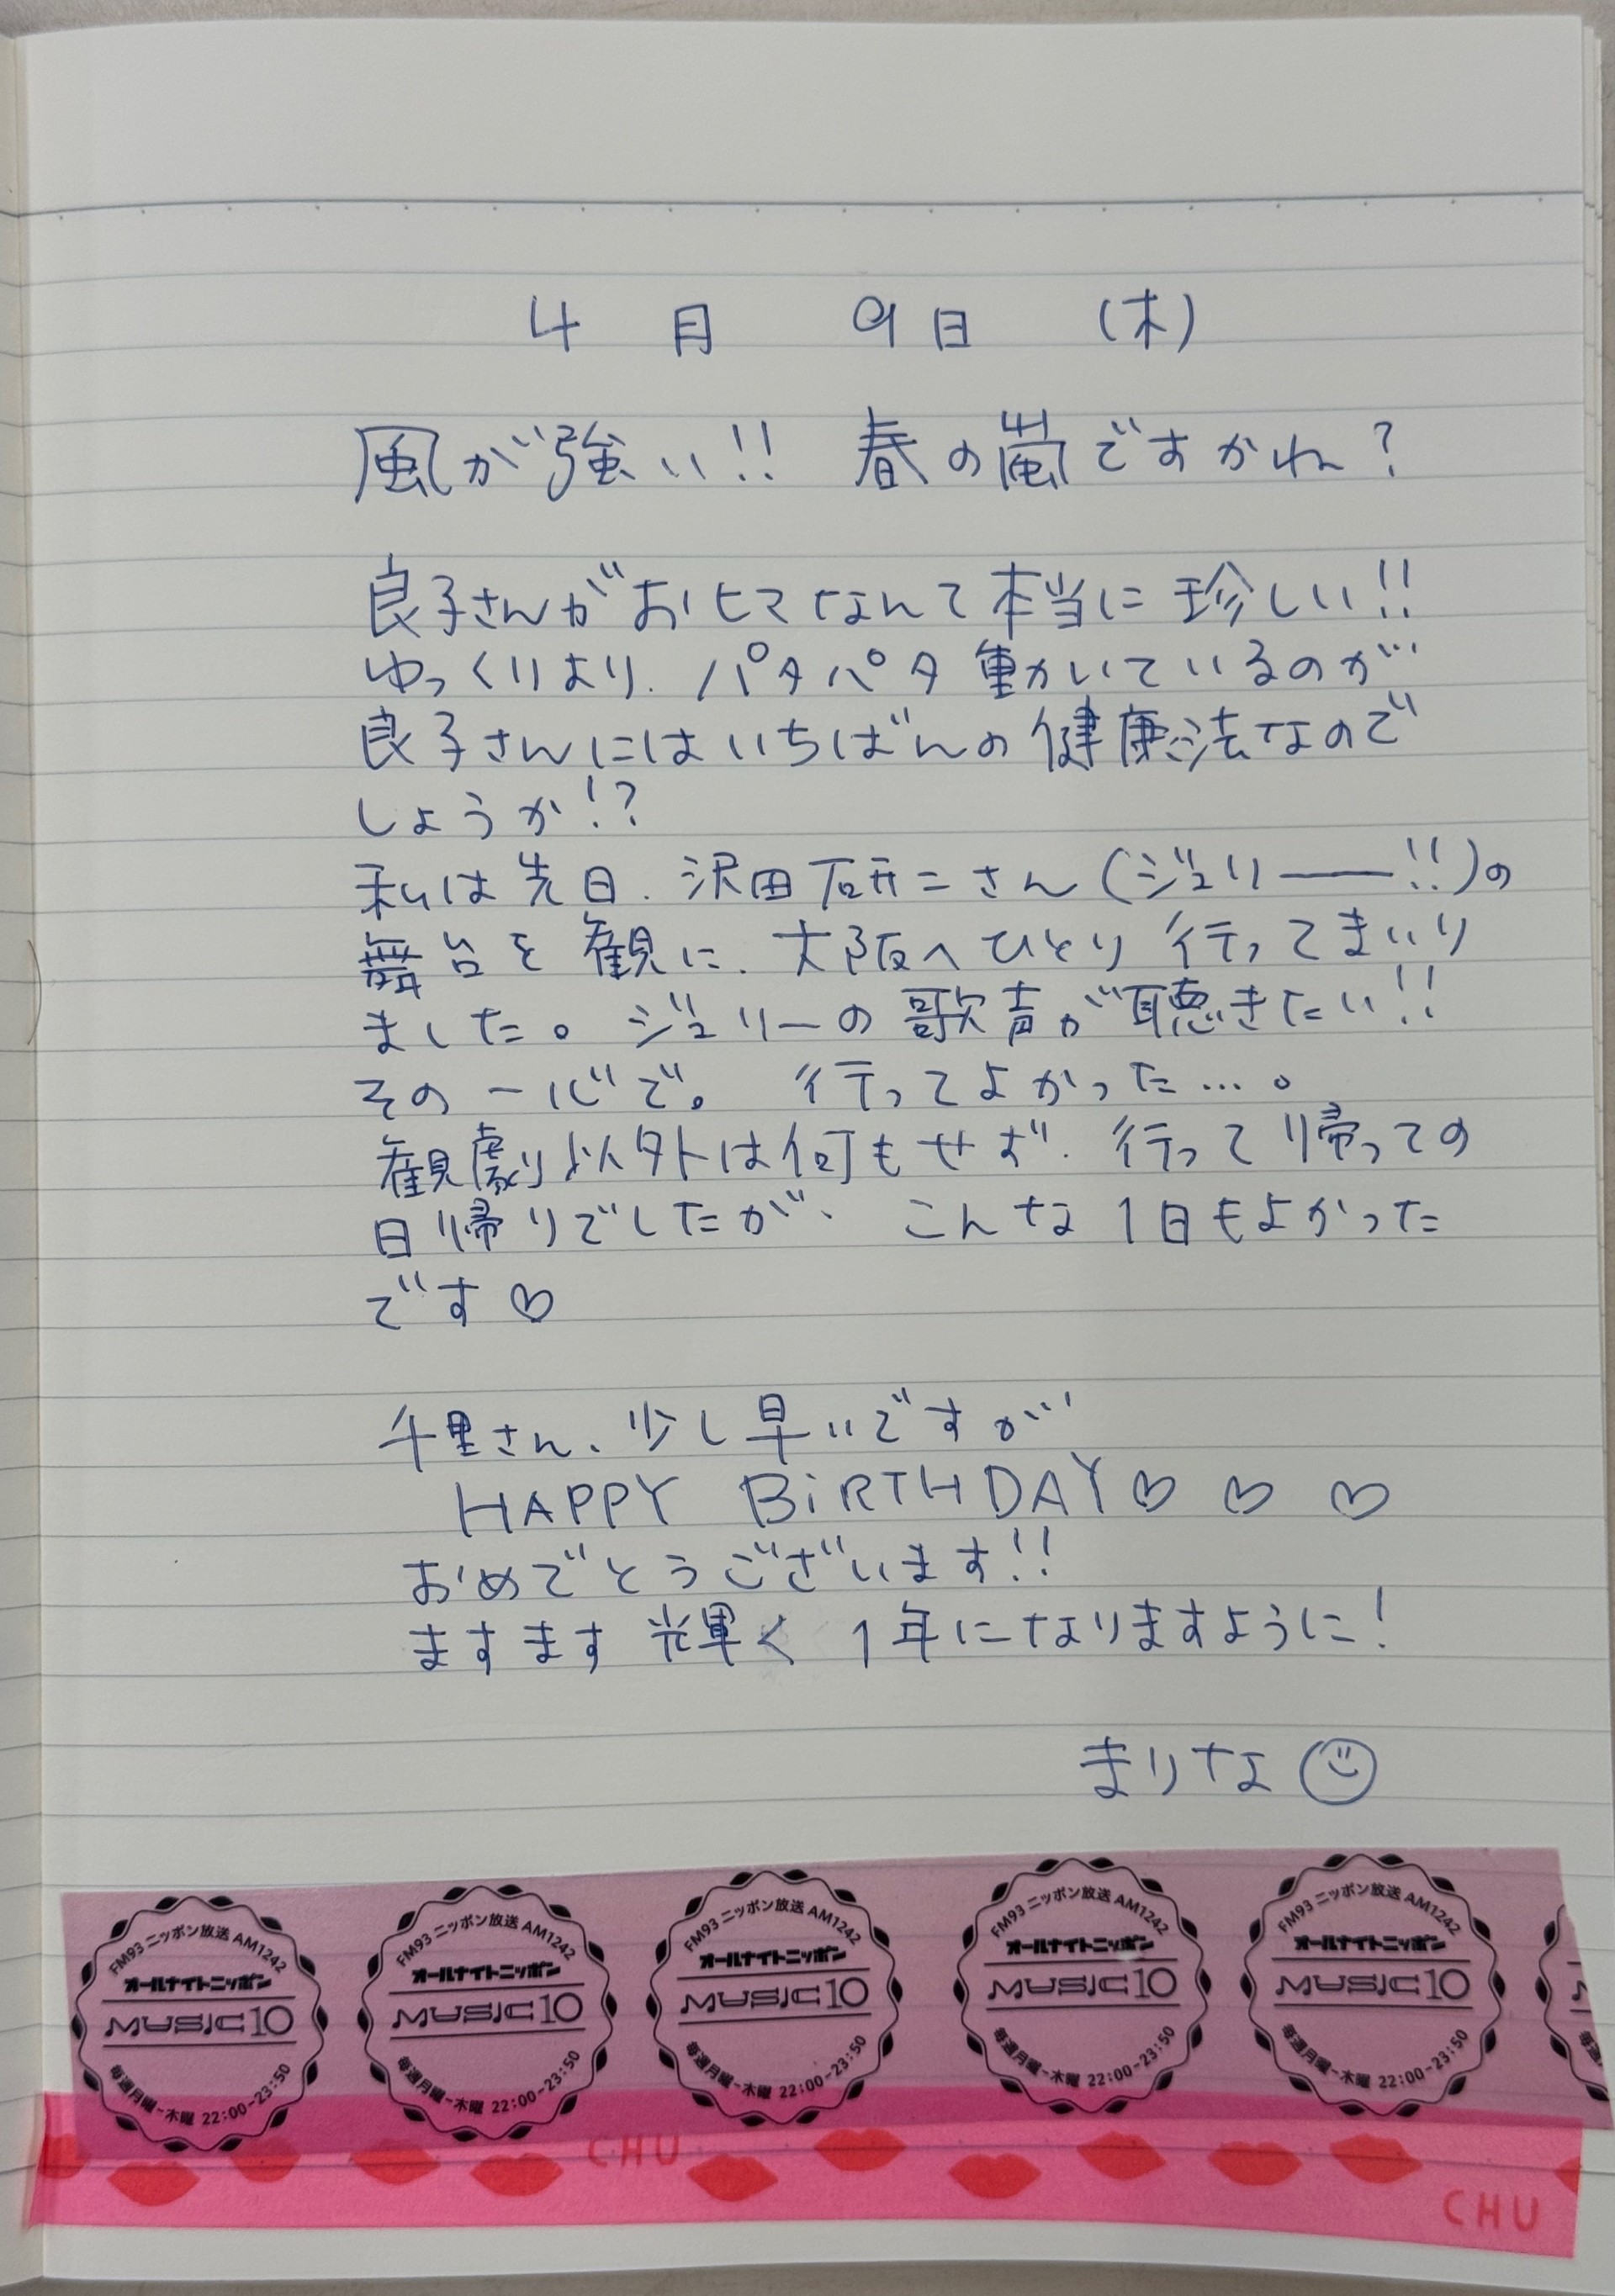 4月 9日 (木)
風が強い!! 春の嵐ですかね?
良子さんがおヒマなんて本当に珍しい!!
ゆっくりより、パタパタ動かいているのが
良子さんにはいちばんの健康法なので
しょうか!?
私は先日、沢田研二さん(ジュリー――!!)の
舞台を観に、大阪へひとり行ってまいり
ました。ジュリーの歌声が聴きたい!!
その一心で。 行ってよかった…。
観劇以外は何もせず、行って帰っての
日帰りでしたが、 こんな1日もよかった
です♡
千里さん、少し早いですが
HAPPY BiRTHDAY♡ ♡ ♡
おめでとうございます!!
ますます輝く 1年になりますように!
まりな☺
FM93 ニッポン放送 AM1242
オールナイトニッポン
MUSIC10
毎週月曜-木曜 22:00-23:50
FM93 ニッポン放送 AM1242
オールナイトニッポン
MUSIC10
毎週月曜-木曜 22:00-23:50
FM93 ニッポン放送 AM1242
オールナイトニッポン
MUSIC10
毎週月曜-木曜 22:00-23:50
FM93 ニッポン放送 AM1242
オールナイトニッポン
MUSIC10
毎週月曜-木曜 22:00-23:50
FM93 ニッポン放送 AM1242
オールナイトニッポン
MUSIC10
毎週月曜-木曜 22:00-23:50
CHU
CHU